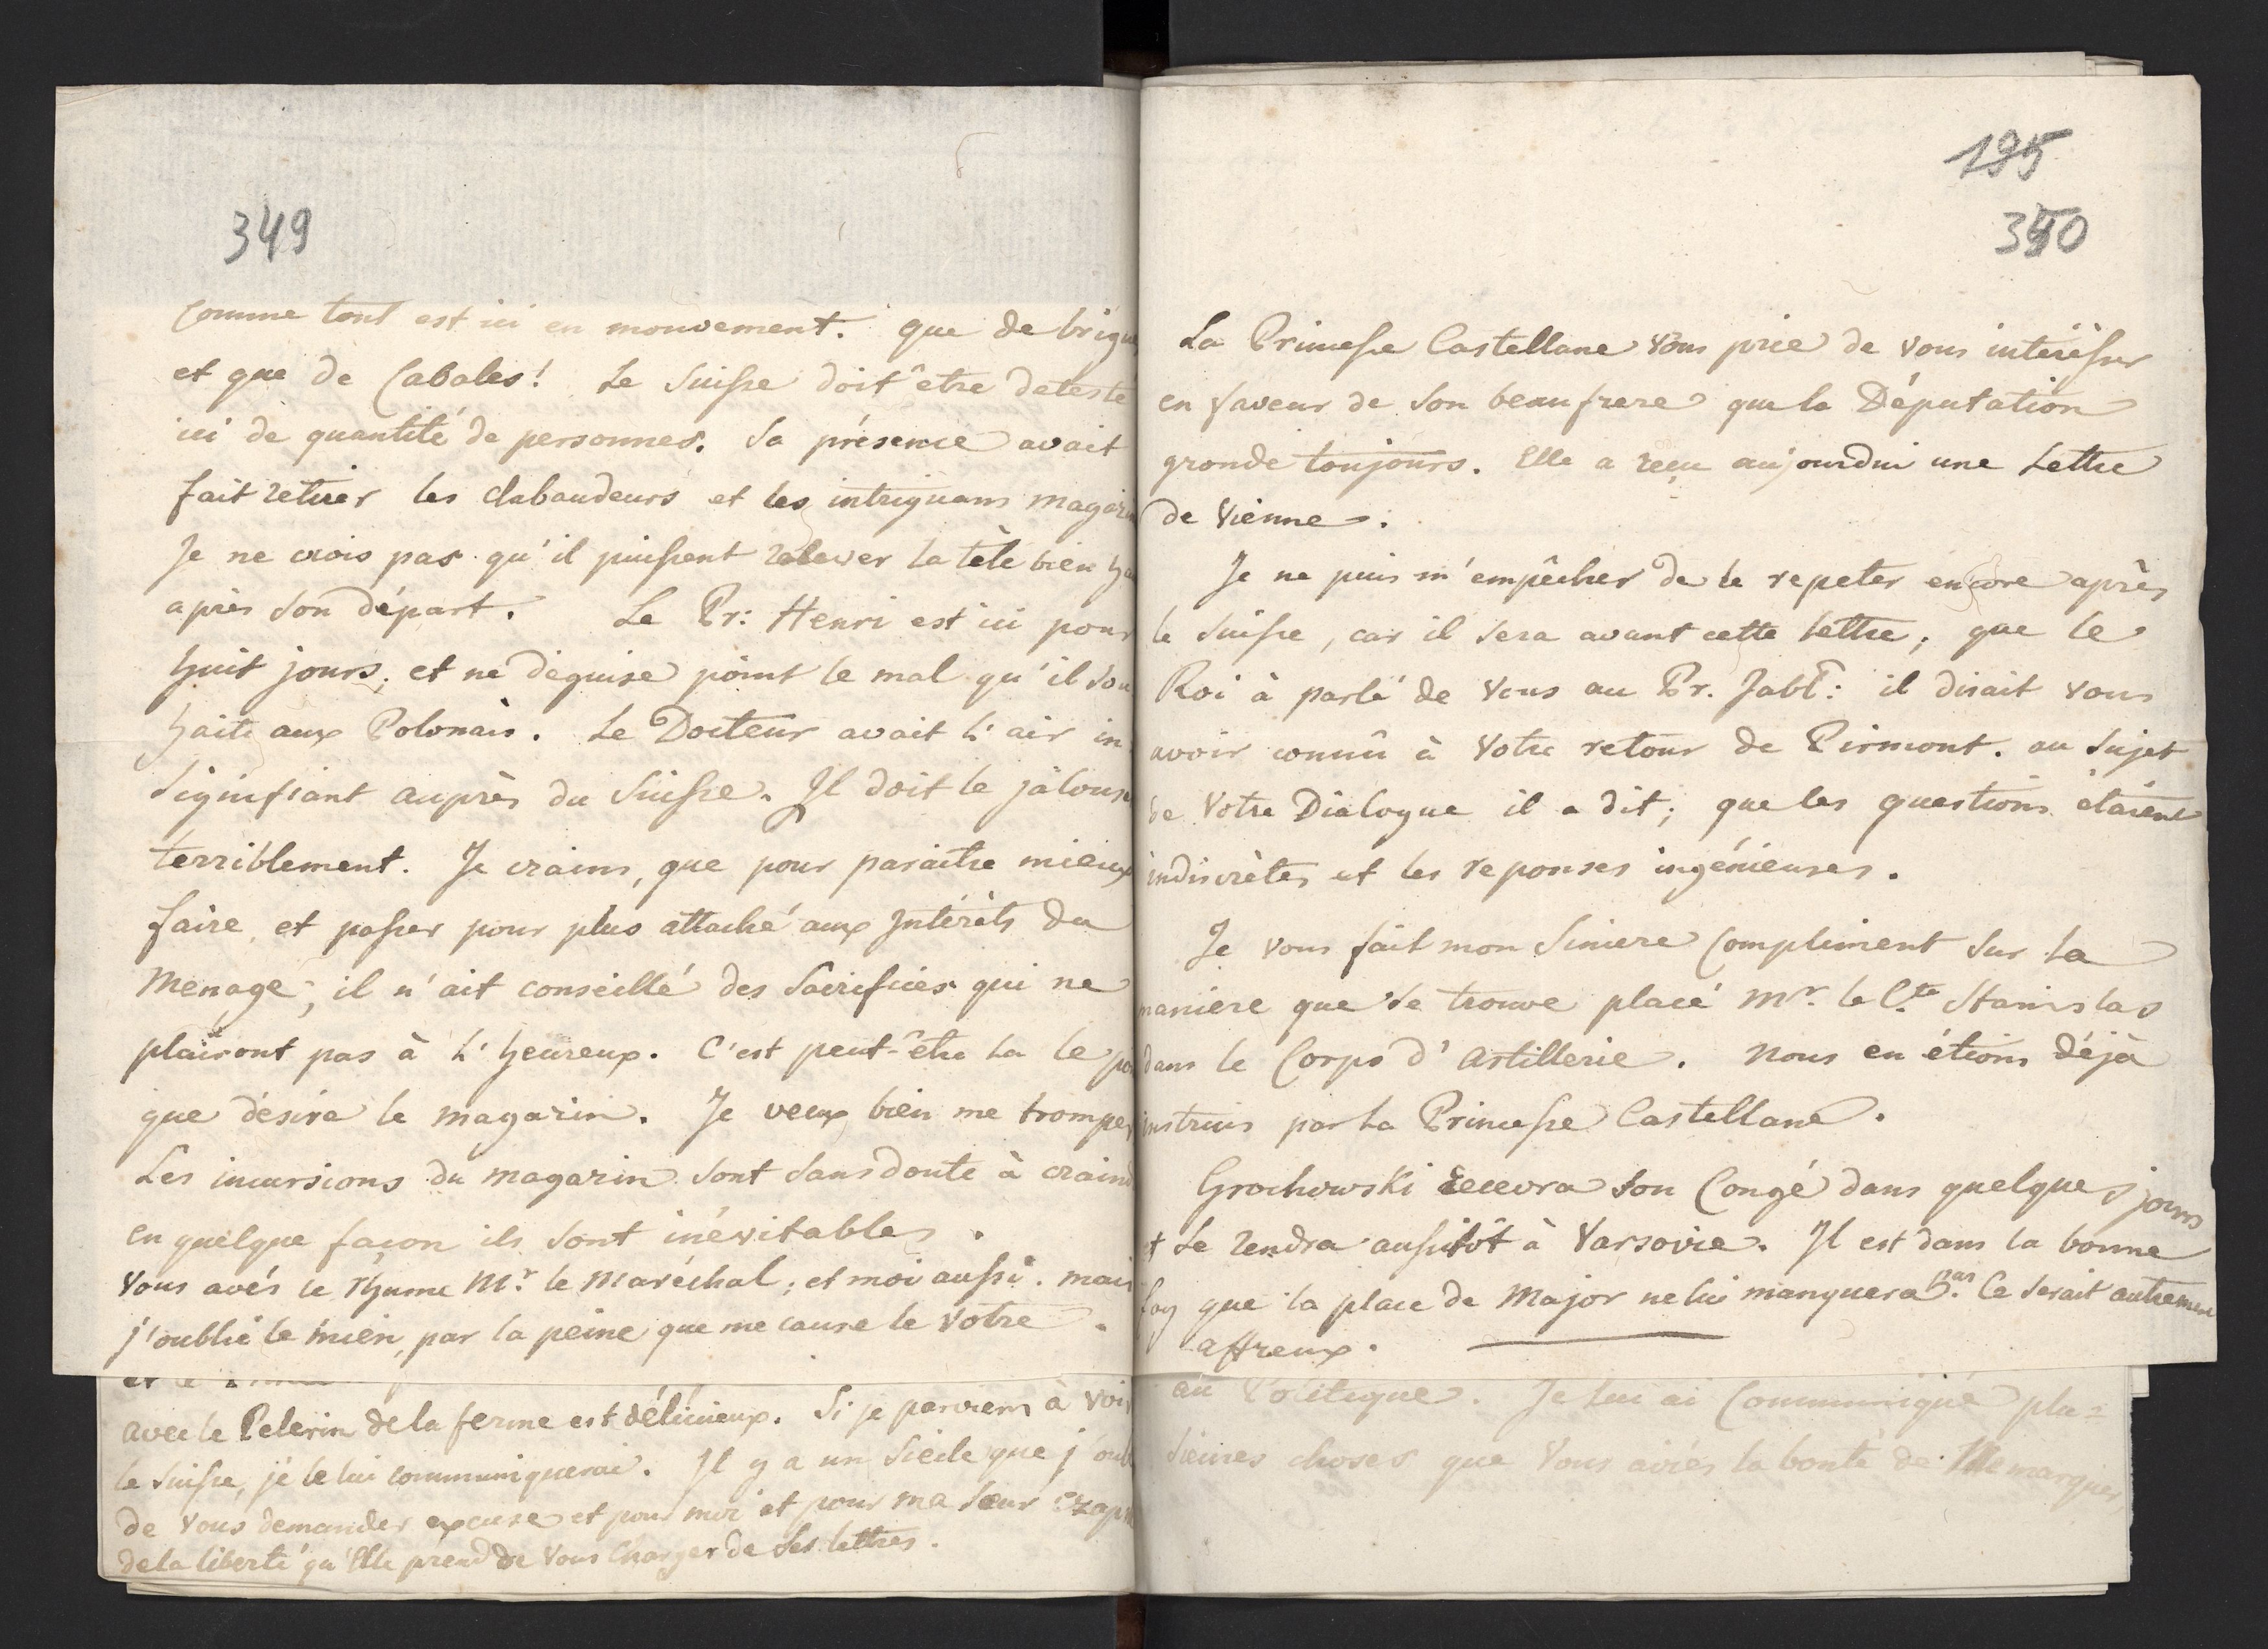 349
comme tout est ici en mouvement. que de brigu
et que de Cabales! Le Suisse doit être detesté
ici de quantité de personnes. Sa présence avait
fait retirer les clabaudeurs et les intriguans magazin
Je ne crois pas qu'il puissent relever la tête bien ha
après son départ. Le Pr: Henri est ici pour
huit jours; et ne déguise point le mal qu'il sou
haite aux Polonais. Le Docteur avait l'air in
signifiant auprès du Suisse. Il doit le jalouse
terriblement. Je crains, que pour paraitre mieux
faire, et passer pour plus attaché aux Intérêts du
Menage; il n'ait conseillé des Sacrifices qui ne
plairont pas à l'heureux. C'est peut-être la le
que désire le magazin. Je veux bien me tromper
Les incursions du magazin sont sans doute à craind
en quelque façon ils sont inévitables.
Vous avés le rhume Mr. le Maréchal; et moi aussi. mais
j'oublie le mien, par la peine que me cause le Votre.
avec le Pelerin de la ferme est délicieux. Si je parviens à voir
le Suisse, je le lui communiquerai. Il y a un Siécle que j'oubl
de Vous demander excuse et pour moi et pour ma Sœur Czap
de la liberté qu'Elle prend de Vous Charger de Ses lettres.
195
350
La Princesse Castellane Vous prie de vous intéresser
en faveur de Son beaufrere que la Députation
gronde toujours. Elle a reçu aujourdui une Lettre
de Vienne.
Je ne puis m'empêcher de le repeter encore après
le Suisse, car il sera avant cette lettre; que le
Roi à parlé de Vous au Pr. Jabł: il disait vous
avoir connû à Votre retour de Pirmont. au Sujet
de Votre Dialogue il a dit; que les questions étaient
indiscrètes et les reponses ingénieuses.
Je vous fait mon Sincere Compliment Sur la
maniere que se trouve placé Mr. le Cte Stanislas
dans le Corps d'Artillerie. Nous en étions déjà
instruis par la Princesse Castellane.
Grochowski recevra Son Congé dans quelques jours
et Se rendra aussitôt à Varsovie. Il est dans la bonne
foy que la place de Major ne lui manquera pas. Ce Serait autrement
affreux.
au Politique. Je lui ai Communiqué plu=
sieures choses que Vous aviés la bonté de Me marquer,